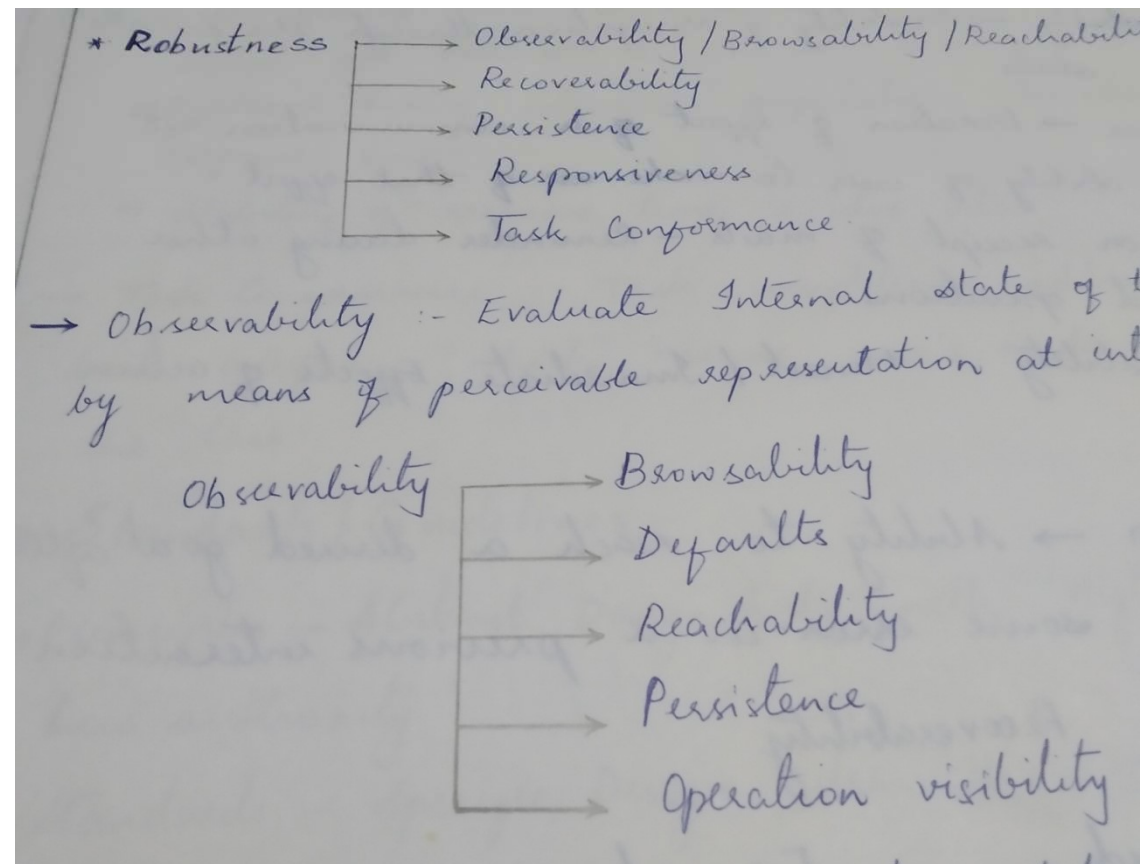 * Robustness → Observability / Browsability / Reachabili
→ Recoverability
→ Persistence
→ Responsiveness
→ Task Conformance
→ Observability :- Evaluate Internal state of t
by means of perceivable representation at int
Observability → Browsability
→ Defaults
→ Reachability
→ Persistence
→ Operation visibility